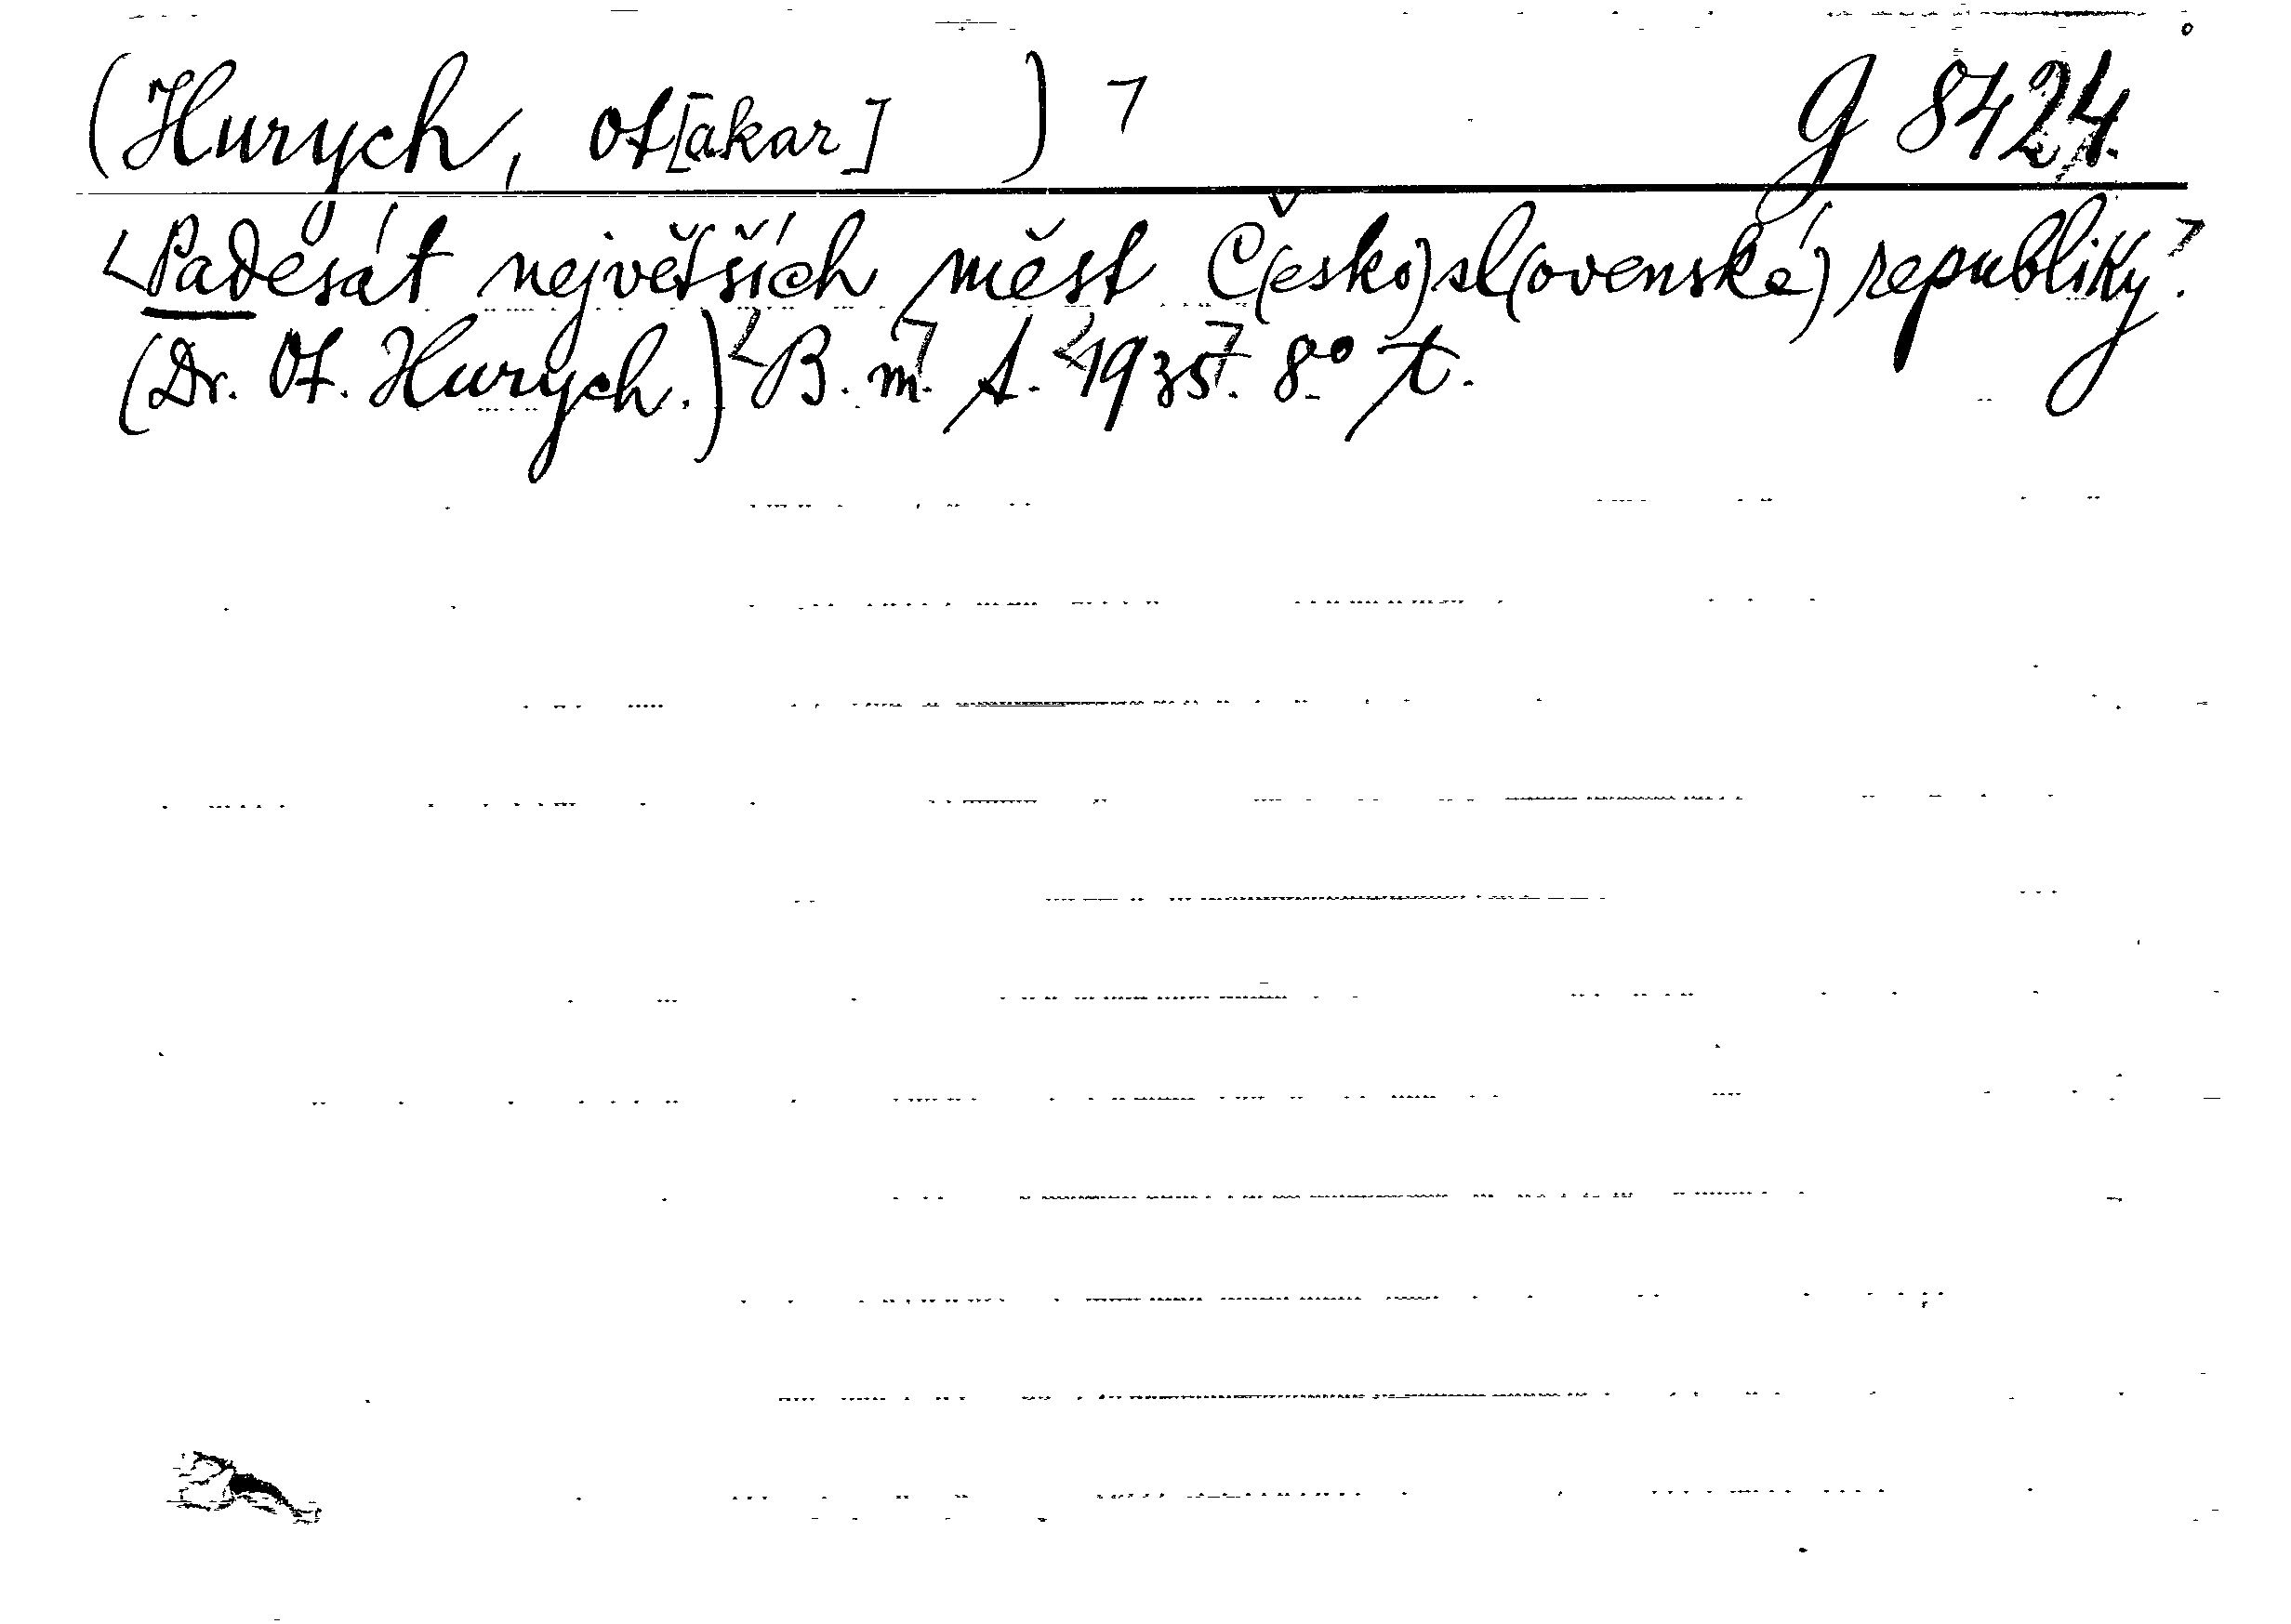 (Hurych, Ot[akar] ) ⌝ G 8424.
<Padesát největších měst Č(esko)sl(ovenské) republiky⌝.
(Dr. Ot. Hurych.) <B. m.⌝ A. <1935⌝. 8° t.